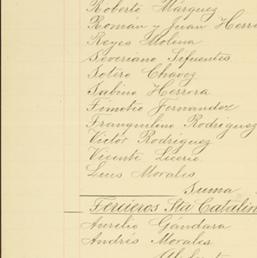 Roberto Márquez
Román y Juan Herre
Reyes Molina
Severiano Sifuentes
Sotero Chavez
Sabino Herrera
Timoteo Fernandez
Tranquilino Rodriguez
Victor Rodriguez
Vicente Licerio
Luis Morales
Suma
Terceros Sta Catalin
Aurelio Gándara
Andrés Morales